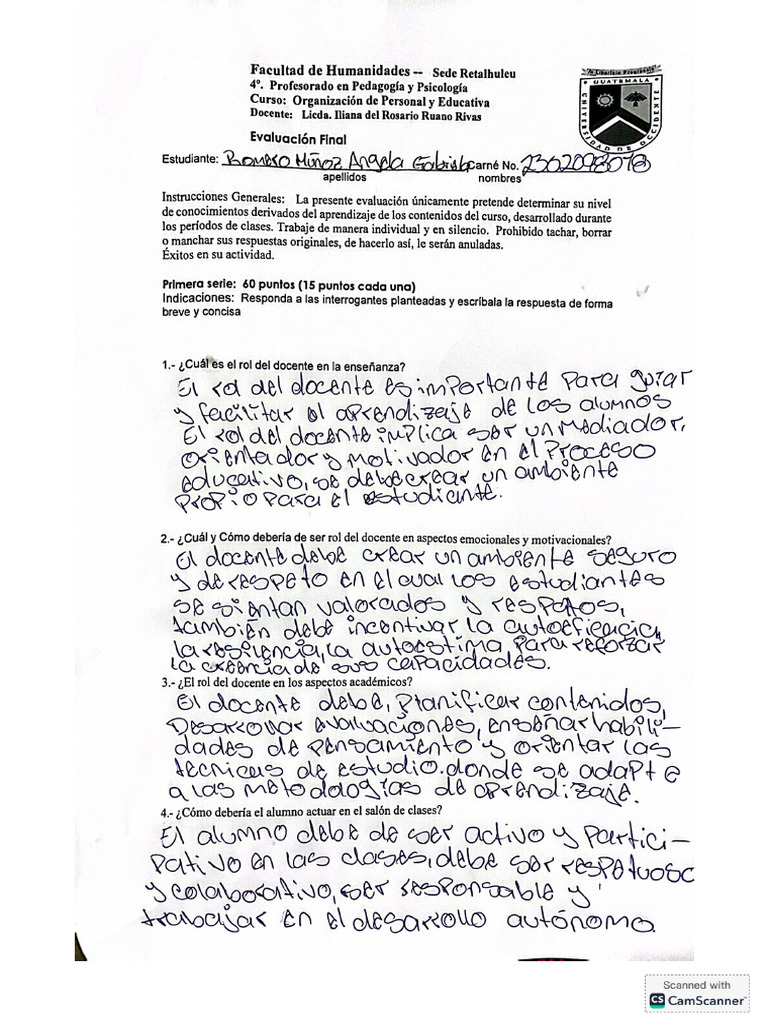 Facultad de Humanidades -- Sede Retalhuleu
4°. Profesorado en Pedagogía y Psicología
Curso: Organización de Personal y Educativa
Docente: Licda. Iliana del Rosario Ruano Rivas
Evaluación Final
GUATEMALA
UNIVERSIDAD DE OCCIDENTE
Estudiante: Romero Muñoz Angela Gabriela Carné No.
apellidos nombres
Instrucciones Generales: La presente evaluación únicamente pretende determinar su nivel
de conocimientos derivados del aprendizaje de los contenidos del curso, desarrollado durante
los períodos de clases. Trabaje de manera individual y en silencio. Prohibido tachar, borrar
o manchar sus respuestas originales, de hacerlo así, le serán anuladas.
Éxitos en su actividad.
Primera serie: 60 puntos (15 puntos cada una)
Indicaciones: Responda a las interrogantes planteadas y escríbala la respuesta de forma
breve y concisa
1.- ¿Cuál es el rol del docente en la enseñanza?
El rol del docente es importante para guiar
y facilitar el aprendizaje de los alumnos
El rol del docente implica ser un mediador,
orientador y motivador en el proceso
educativo, se debe crear un ambiente
propio para el estudiante.
2.- ¿Cuál y Cómo debería de ser rol del docente en aspectos emocionales y motivacionales?
El docente debe crear un ambiente seguro
y de respeto en el cual los estudiantes
se sientan valorados y respetos,
también debe incentivar la autoeficacia,
la resiliencia, la autoestima para reforzar
la creencia de sus capacidades.
3.- ¿El rol del docente en los aspectos académicos?
El docente debe, planificar contenidos,
Desarrollar evaluaciones, enseñar habili-
dades de pensamiento y orientar las
tecnicas de estudio. donde se adapte
a las metodologías de aprendizaje.
4.- ¿Cómo debería el alumno actuar en el salón de clases?
El alumno debe de ser activo y partici-
pativo en las clases, debe ser respetuoso
y colaborativo, ser responsable y
trabajar en el desarrollo autónomo.
Scanned with
CS CamScanner